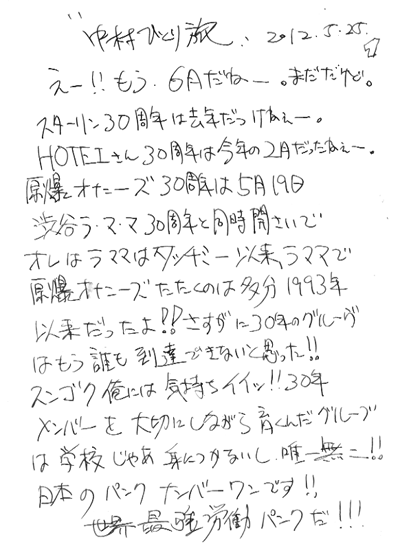 "中村ひとり旅、2012.5.25.
えー!!もう、6月だねー。まだだけど。
スターリン30周年は去年だっけねぇー。
HOTEIさん30周年は今年の2月だったねぇー。
原爆オナニーズ30周年は5月19日
渋谷ラ・ママ30周年と同時開さいで
オレはラママはタッチミー以来、ラママで
原爆オナニーズたたくのは多分1993年
以来だったよ!?さすがに30年のグループ
はもう誰も到達できないと思った!!
スンゴク俺には気持ちイイッ!!30年
メンバーを大切にしながら育くんだグループ
は学校じゃあ身につかないし、唯一無二!!
日本のパンクナンバーワンです!!
世界最強労働パンクだ!!!